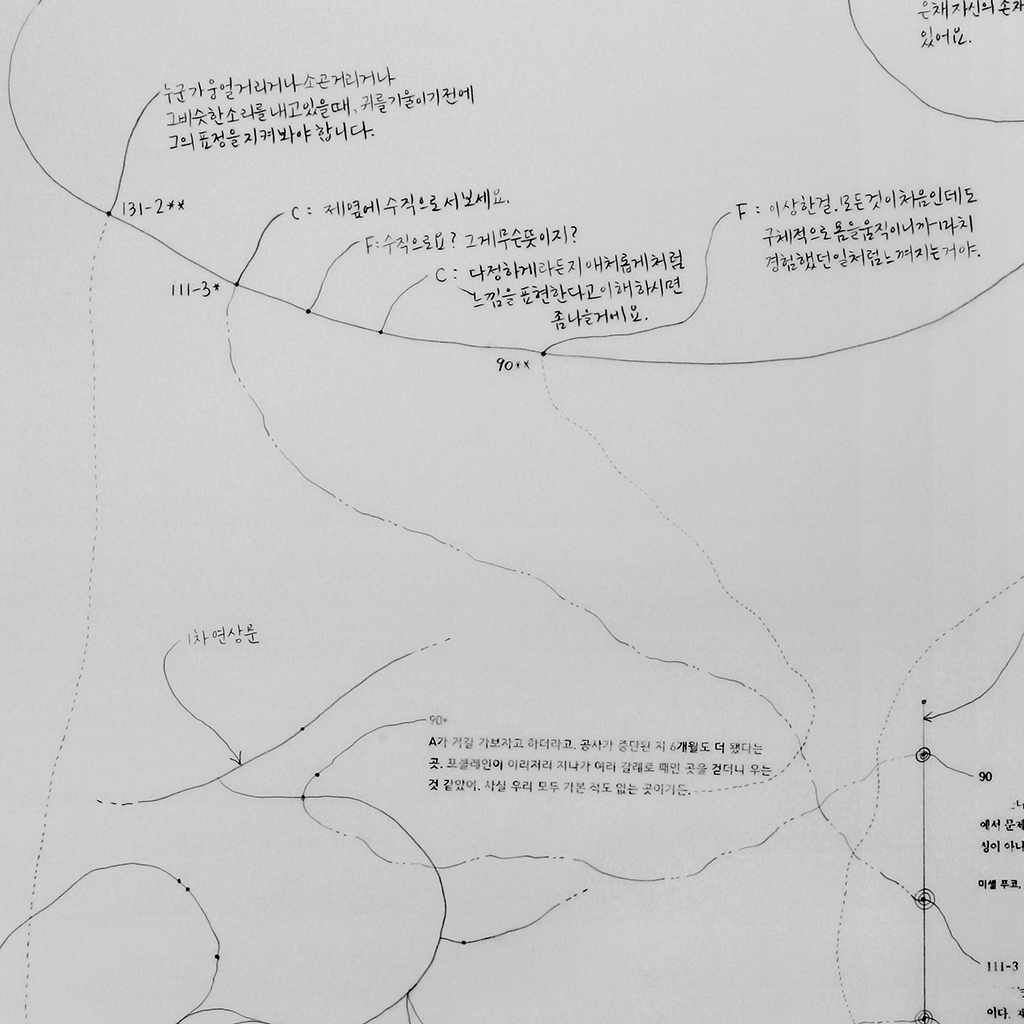 은채 자신의 존재
있어요.
누군가 웅얼거리거나 소곤거리거나
그 비슷한 소리를 내고 있을 때, 귀를 기울이기 전에
그의 표정을 지켜봐야 합니다.
131-2**
C: 제 옆에 수직으로 서보세요.
F: 수직으로요? 그게 무슨 뜻이지?
111-3*
C: 다정하게라든지 애처롭게처럼
느낌을 표현한다고 이해하시면
좀 나을 거에요.
F: 이상한 걸. 모든 것이 처음인데도
구체적으로 몸을 움직이니까 마치
경험했던 일처럼 느껴지는 거야.
90**
1차 연상문
90*
A가 거길 가보자고 하더라고. 공사가 중단된 지 6개월도 더 됐다는
곳. 포클레인이 이리저리 지나가 여러 갈래로 패인 곳을 걷더니 우는
것 같았어. 사실 우리 모두 가본 적도 없는 곳이거든.
90
에서 문제
싱이 아니
미셸 푸코,
111-3
이다.